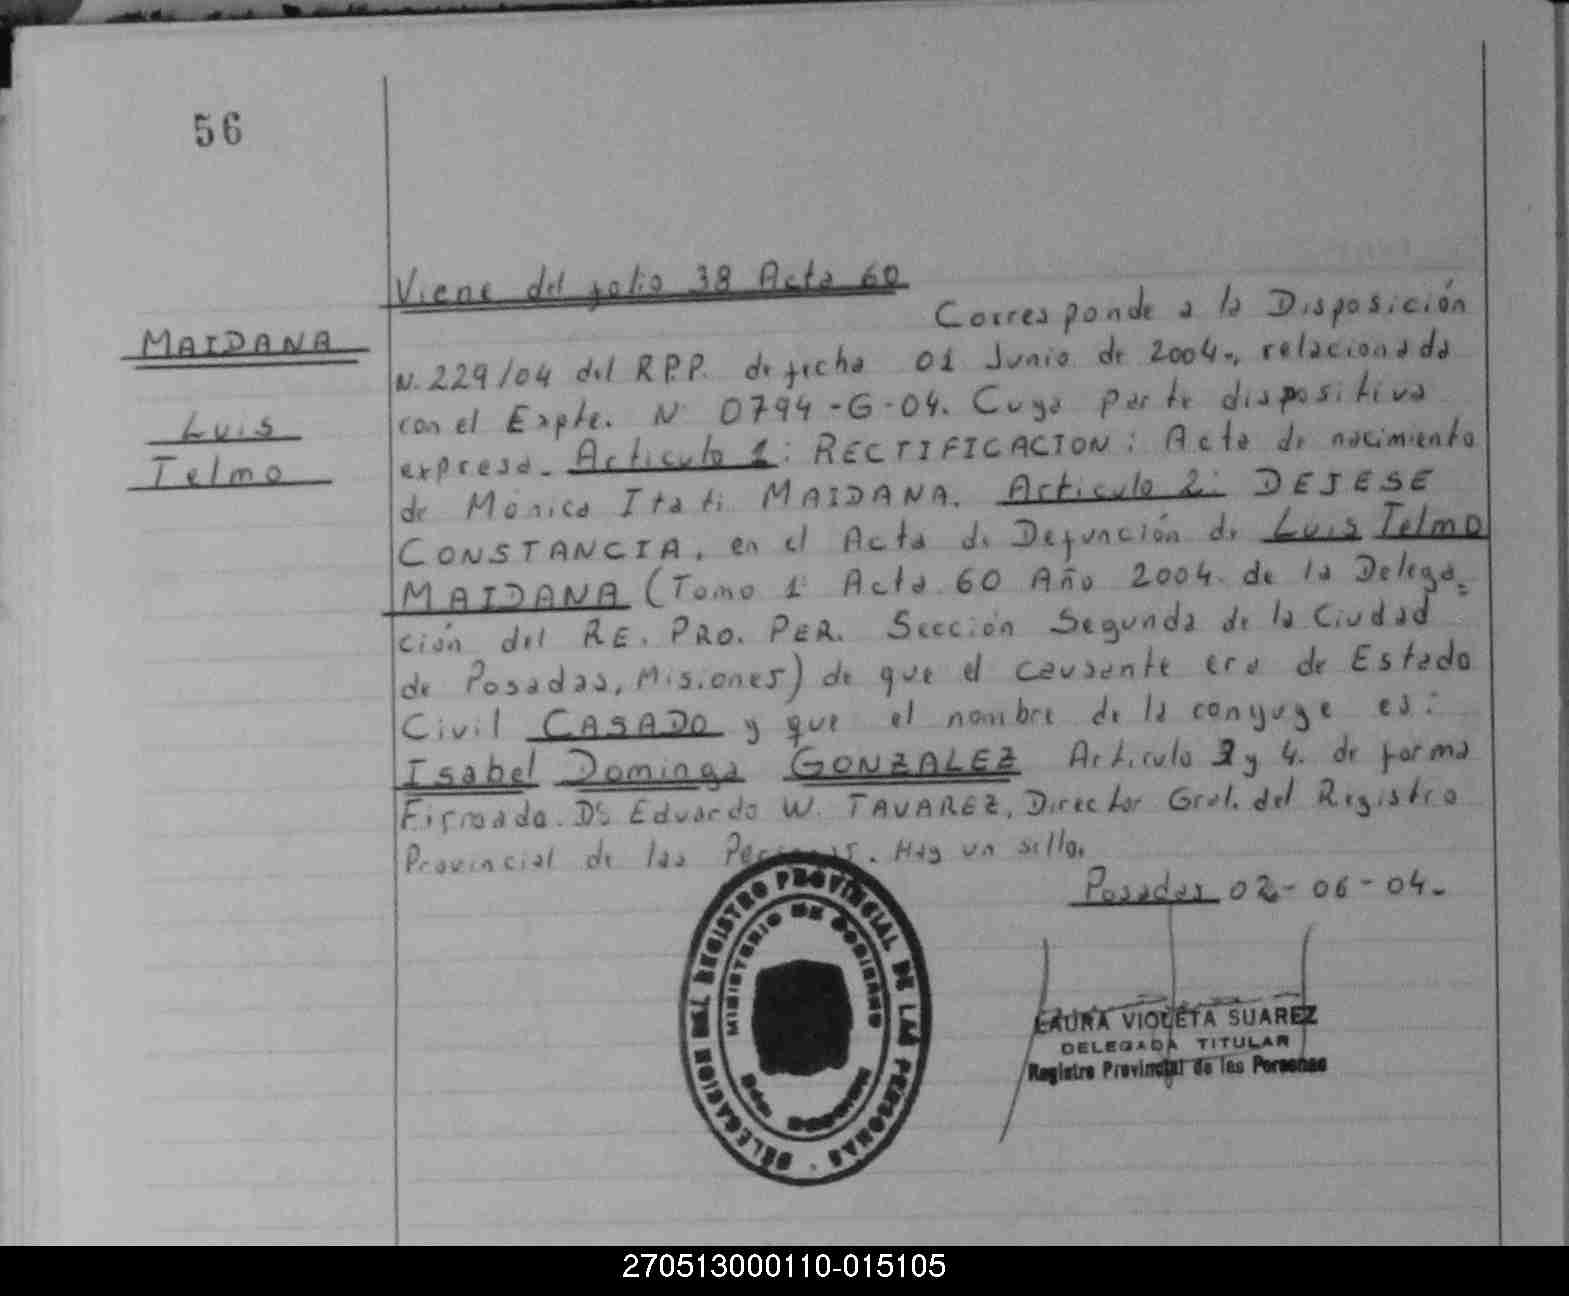 56
MAIDANA
Luis
Telmo
Viene del folio 38 Acta 60
Corresponde a la Disposición
N. 229/04 del R.P.P. de fecha 01 Junio de 2004., relacionada
con el Expte. N 0794-G-04. Cuya parte dispositiva
expresa. Articulo 1: RECTIFICACION: Acta de nacimiento
de Mónica Itati MAIDANA. Articulo 2: DEJESE
CONSTANCIA, en el Acta de Defunción de Luis Telmo
MAIDANA (Tomo 1 Acta 60 Año 2004. de la Delega=
ción del RE. PRO. PER. Sección Segunda de la Ciudad
de Posadas, Misiones) de que el causante era de Estado
Civil CASADO y que el nombre de la conyuge es:
Isabel Dominga GONZALEZ Articulo 3 y 4. de forma
Firmado. Dr. Eduardo W. TAVAREZ, Director Gral. del Registro
Provincial de las Personas. Hay un sello.
Posadas 02-06-04.
DELEGACION DEL REGISTRO PROVINCIAL DE LAS PERSONAS
MINISTERIO DE GOBIERNO
LAURA VIOLETA SUAREZ
DELEGADA TITULAR
Registro Provincial de las Personas
270513000110-015105